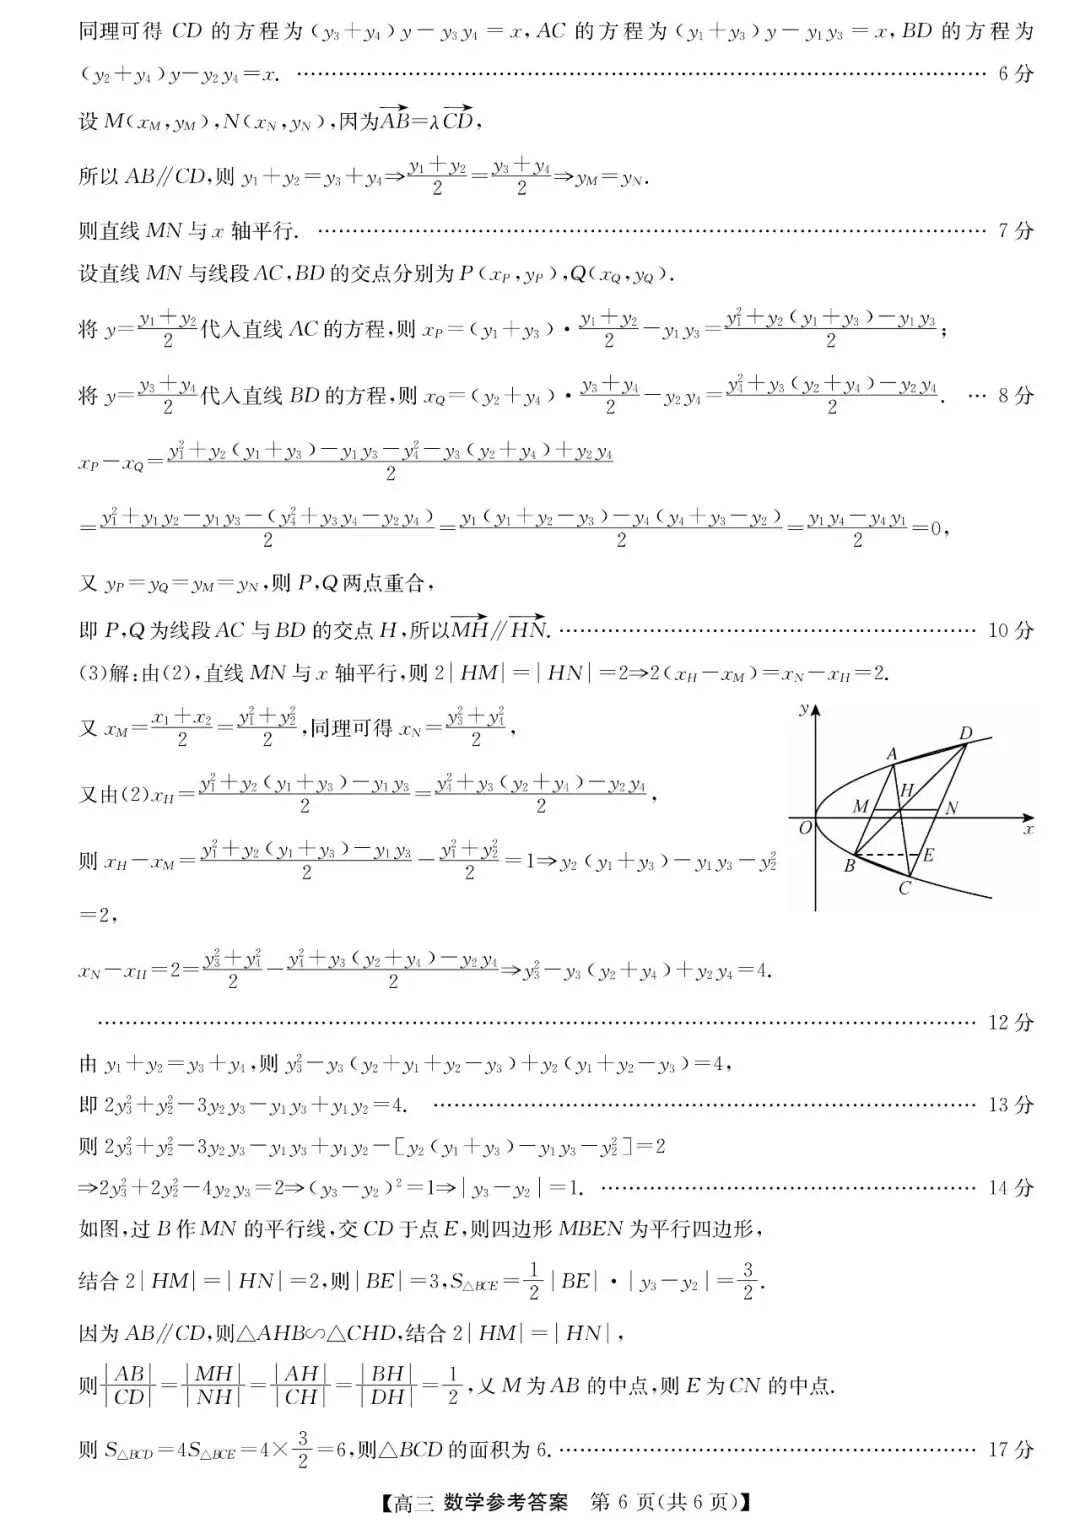 同理可得 CD 的方程为(y₃+y₄)y-y₃y₄=x,AC 的方程为(y₁+y₃)y-y₁y₃=x,BD 的方程为
(y₂+y₄)y-y₂y₄=x. …… 6 分
设 M(x_M,y_M),N(x_N,y_N),因为\overrightarrow{AB}=λ\overrightarrow{CD},
所以 AB∥CD,则 y₁+y₂=y₃+y₄⇒\frac{y₁+y₂}{2}=\frac{y₃+y₄}{2}⇒y_M=y_N.
则直线 MN 与 x 轴平行. …… 7 分
设直线 MN 与线段 AC,BD 的交点分别为 P(x_P,y_P),Q(x_Q,y_Q).
将 y=\frac{y₁+y₂}{2}代入直线 AC 的方程,则 x_P=(y₁+y₃)·\frac{y₁+y₂}{2}-y₁y₃=\frac{y₁²+y₂(y₁+y₃)-y₁y₃}{2};
将 y=\frac{y₃+y₄}{2}代入直线 BD 的方程,则 x_Q=(y₂+y₄)·\frac{y₃+y₄}{2}-y₂y₄=\frac{y₄²+y₃(y₂+y₄)-y₂y₄}{2}. … 8 分
x_P-x_Q=\frac{y₁²+y₂(y₁+y₃)-y₁y₃-y₄²-y₃(y₂+y₄)+y₂y₄}{2}
=\frac{y₁²+y₁y₂-y₁y₃-(y₄²+y₃y₄-y₂y₄)}{2}=\frac{y₁(y₁+y₂-y₃)-y₄(y₄+y₃-y₂)}{2}=\frac{y₁y₄-y₄y₁}{2}=0,
又 y_P=y_Q=y_M=y_N,则 P,Q 两点重合,
即 P,Q 为线段 AC 与 BD 的交点 H,所以\overrightarrow{MH}∥\overrightarrow{HN}. …… 10 分
(3)解:由(2),直线 MN 与 x 轴平行,则 2|HM|=|HN|=2⇒2(x_H-x_M)=x_N-x_H=2.
又 x_M=\frac{x₁+x₂}{2}=\frac{y₁²+y₂²}{2},同理可得 x_N=\frac{y₃²+y₄²}{2},
又由(2)x_H=\frac{y₁²+y₂(y₁+y₃)-y₁y₃}{2}=\frac{y₄²+y₃(y₂+y₄)-y₂y₄}{2},
则 x_H-x_M=\frac{y₁²+y₂(y₁+y₃)-y₁y₃}{2}-\frac{y₁²+y₂²}{2}=1⇒y₂(y₁+y₃)-y₁y₃-y₂²
=2,
y
D
A
H
M
N
O
x
E
B
C
x_N-x_H=2=\frac{y₃²+y₄²}{2}-\frac{y₄²+y₃(y₂+y₄)-y₂y₄}{2}⇒y₃²-y₃(y₂+y₄)+y₂y₄=4.
…… 12 分
由 y₁+y₂=y₃+y₄,则 y₃²-y₃(y₂+y₁+y₂-y₃)+y₂(y₁+y₂-y₃)=4,
即 2y₃²+y₂²-3y₂y₃-y₁y₃+y₁y₂=4. …… 13 分
则 2y₃²+y₂²-3y₂y₃-y₁y₃+y₁y₂-[y₂(y₁+y₃)-y₁y₃-y₂²]=2
⇒2y₃²+2y₂²-4y₂y₃=2⇒(y₃-y₂)²=1⇒|y₃-y₂|=1. …… 14 分
如图,过 B 作 MN 的平行线,交 CD 于点 E,则四边形 MBEN 为平行四边形,
结合 2|HM|=|HN|=2,则|BE|=3,S_{△BCE}=\frac{1}{2}|BE|·|y₃-y₂|=\frac{3}{2}.
因为 AB∥CD,则△AHB∽△CHD,结合 2|HM|=|HN|,
则\frac{|AB|}{|CD|}=\frac{|MH|}{|NH|}=\frac{|AH|}{|CH|}=\frac{|BH|}{|DH|}=\frac{1}{2},又 M 为 AB 的中点,则 E 为 CN 的中点.
则 S_{△BCD}=4S_{△BCE}=4×\frac{3}{2}=6,则△BCD 的面积为 6. …… 17 分
【高三 数学参考答案 第 6 页(共 6 页)】